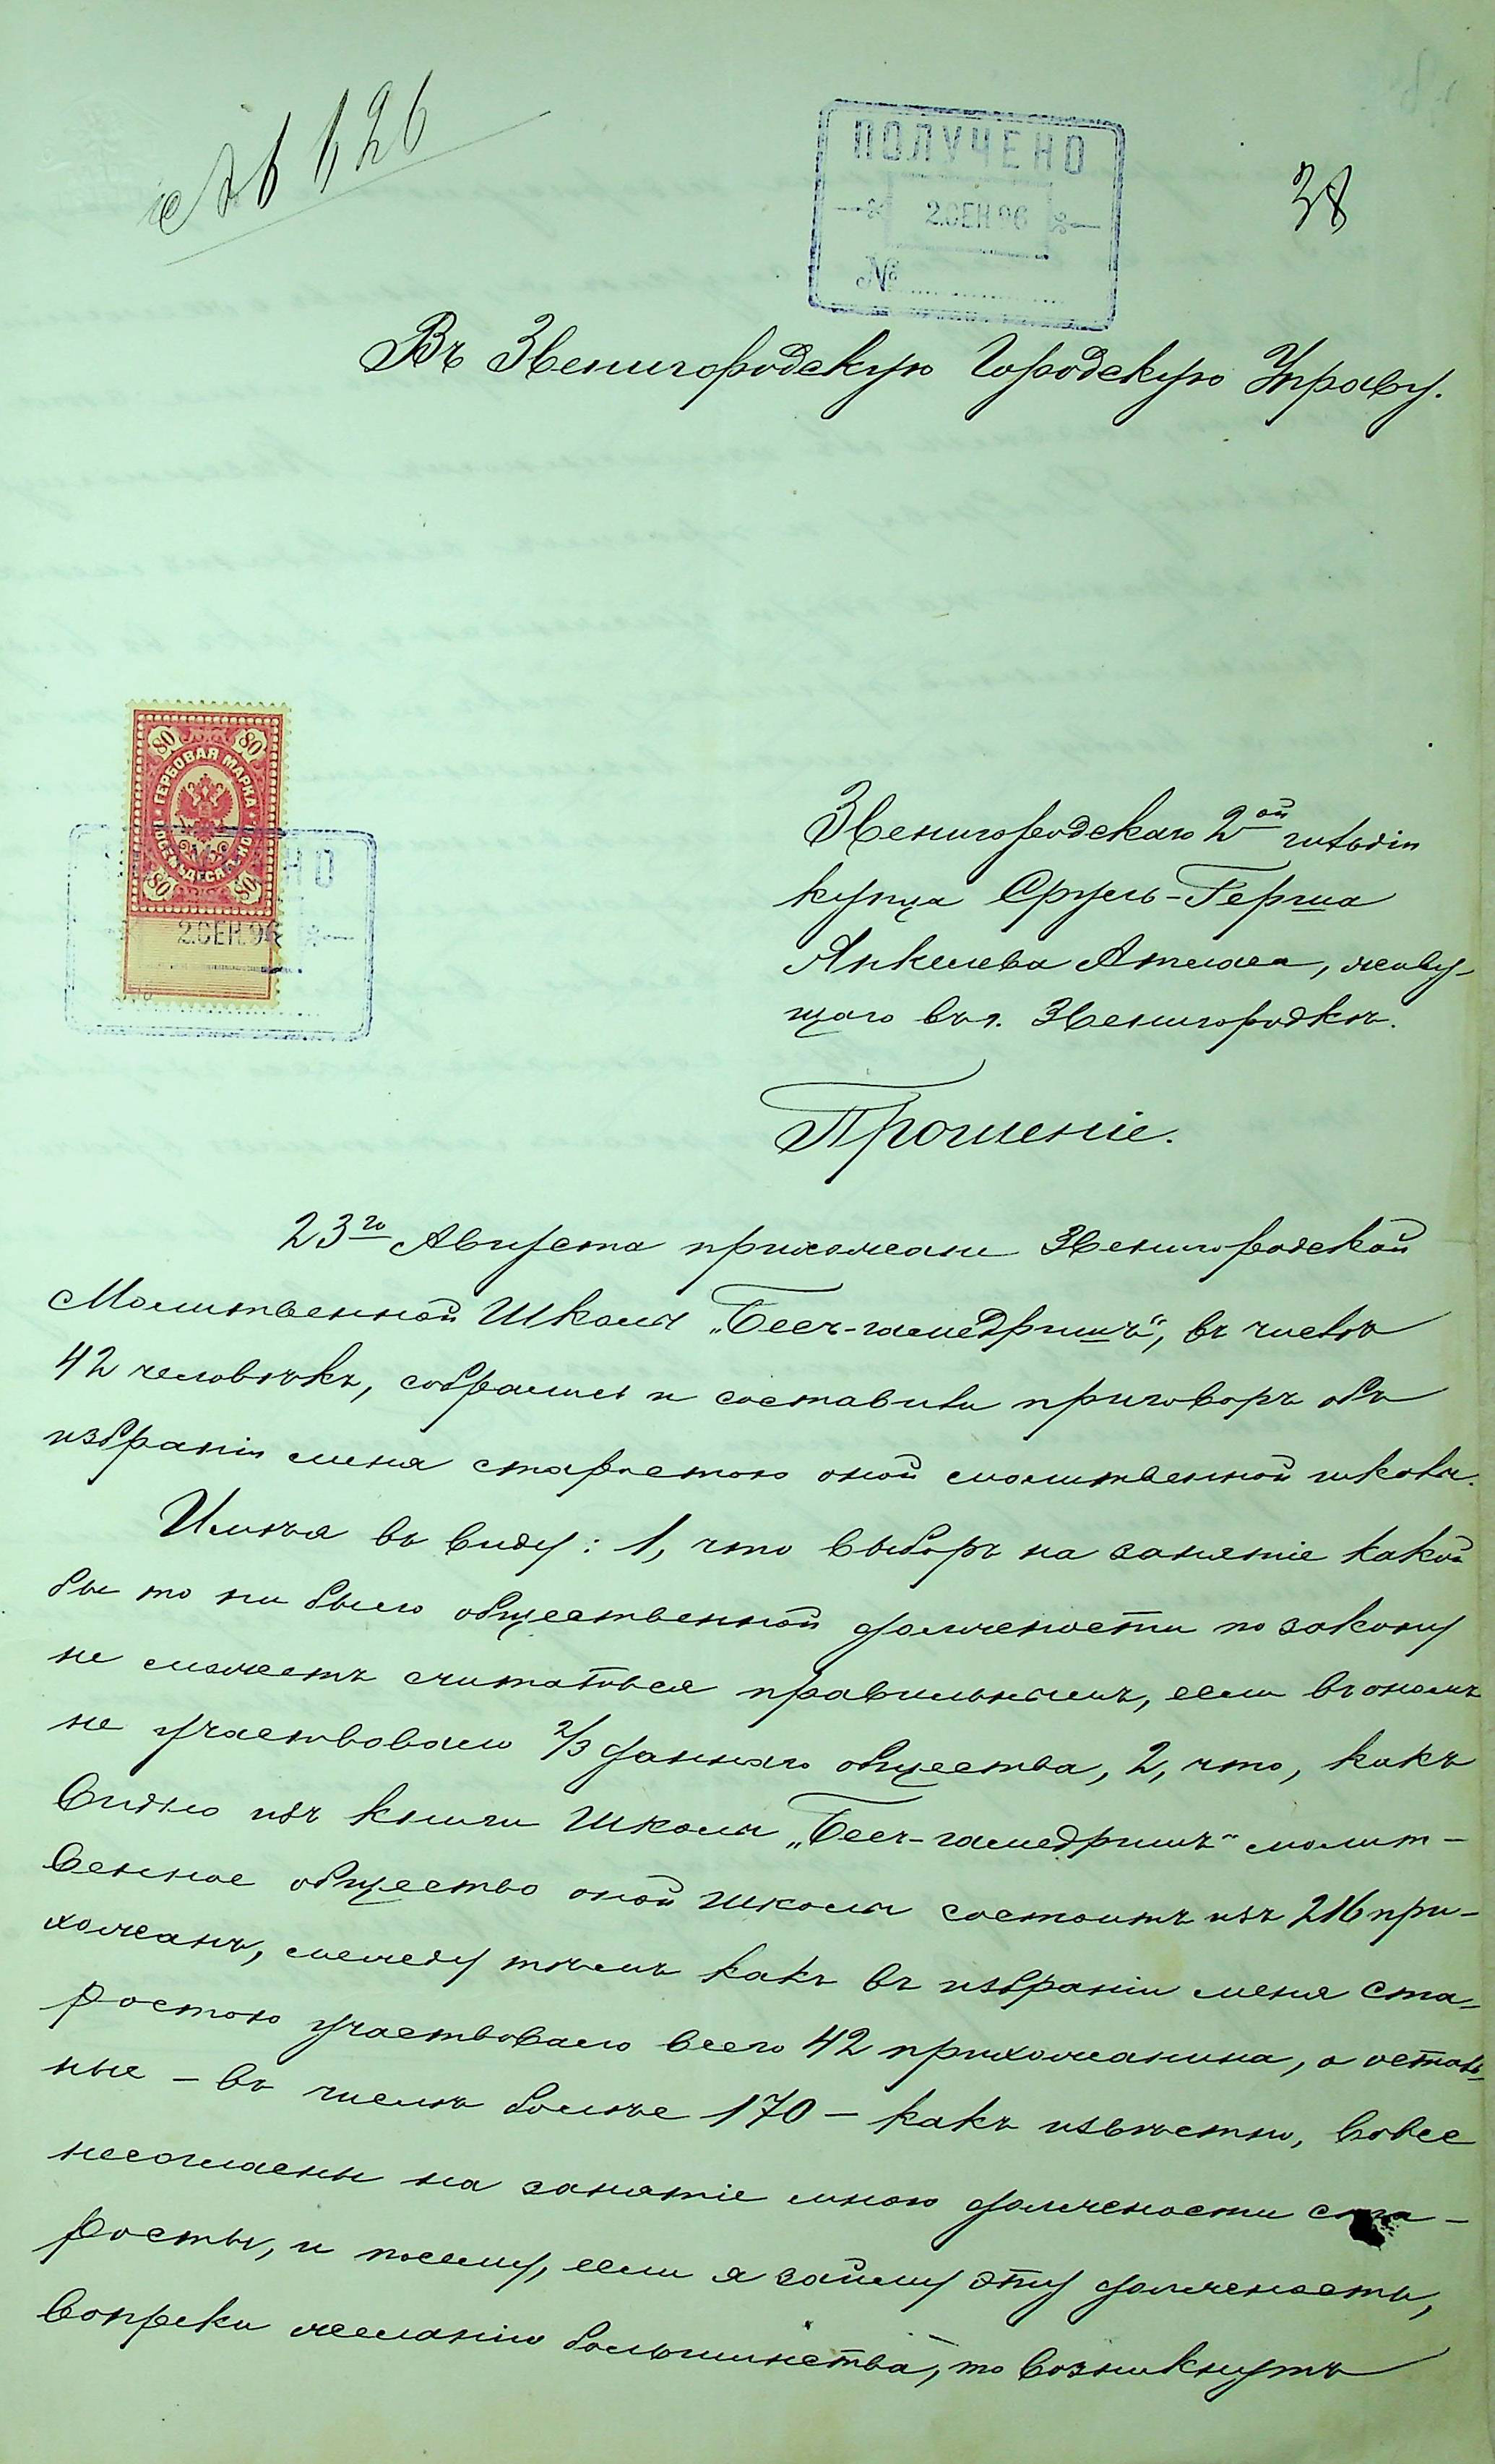 626
ПОЛУЧЕНО
2.СЕН.96
№
38
Въ Звенигородскую Городскую Управу.
80 80
ГЕРБОВАЯ МАРКА
ВОСЕМЬДЕСЯТЬ КОП.
80 80
2.СЕН.96
Звенигородскаго 2ой гильдіи
купца Сруль-Герша
Янкелева Атласа, живу-
щаго въ г. Звенигородкѣ.
Прошеніе.
23го Августа прихожане Звенигородской
Молитвенной Школы „Бесъ-гамедришъ", въ числѣ
42 человѣкъ, собрались и составили приговоръ объ
избраніи меня старостою оной молитвенной школы.
Имѣя въ виду: 1, что выборъ на занятіе какой
бы то ни было общественной должности по закону
не можетъ считаться правильнымъ, если въ ономъ
не участвовало 2/3 даннаго общества, 2, что, какъ
видно изъ книги Школы „Бесъ-гамедришъ" молит-
венное общество оной школы состоитъ изъ 216 при-
хожанъ, между тѣмъ какъ въ избраніи меня ста-
ростою участвовало всего 42 прихожанина, а осталь-
ные – въ числѣ болѣе 170 – какъ извѣстно, вовсе
несогласны на занятіе мною должности ста-
росты, и посему, если я займу эту должность,
вопреки желанію большинства, то возникнутъ